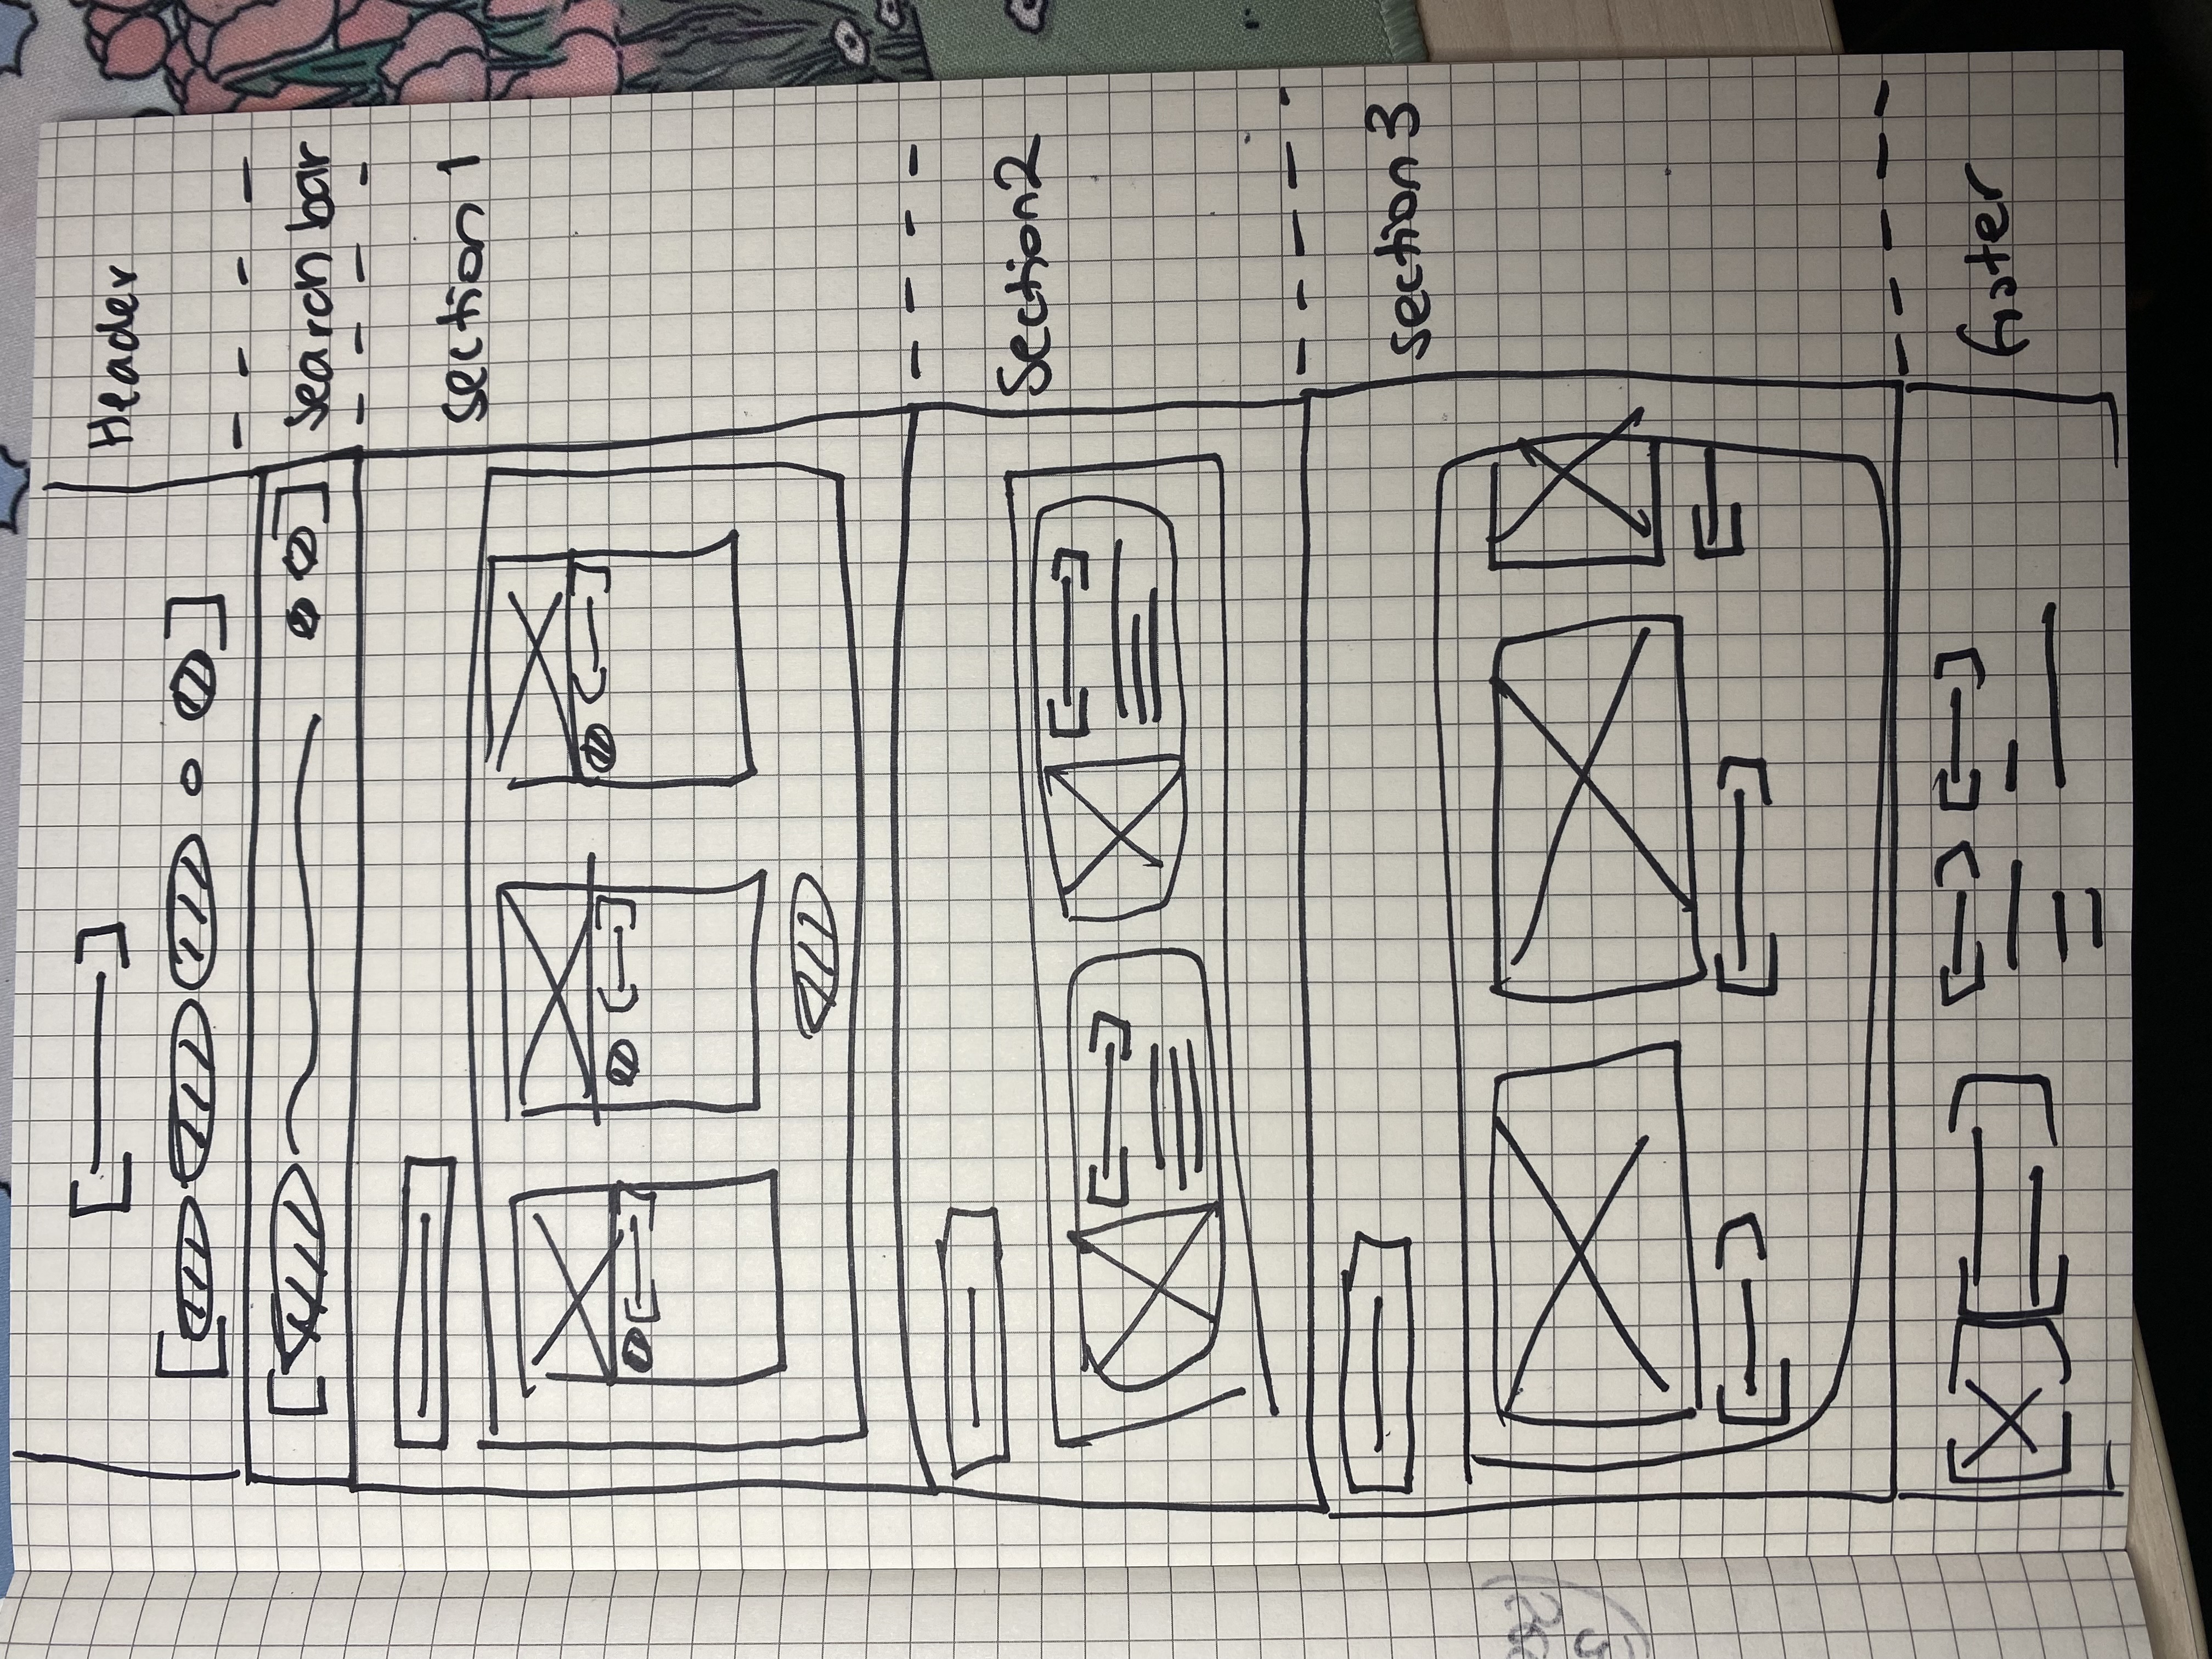 Header
Search bar
section 1
Section2
section 3
footer